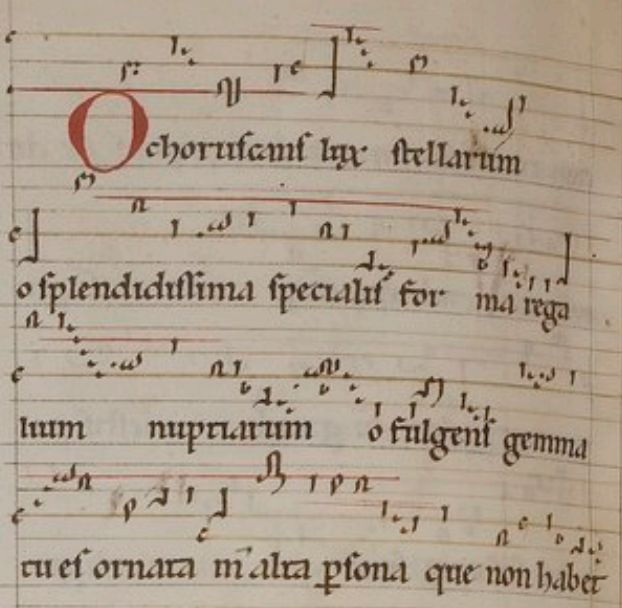 O choruscans lux stellarum
o splendidissima specialis for ma rega
lium nuptiarum o fulgens gemma
tu es ornata in alta p̲sona que non habet